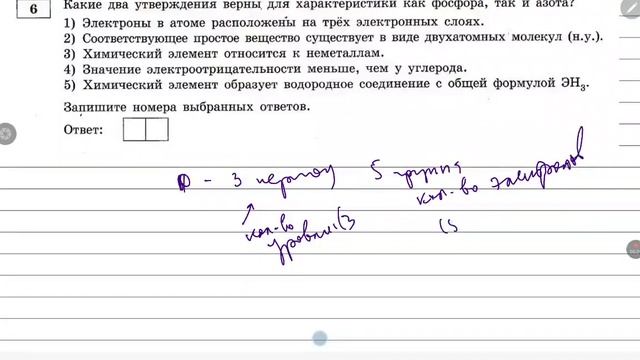 6
Какие два утверждения верны для характеристики как фосфора, так и азота?
1) Электроны в атоме расположены на трёх электронных слоях.
2) Соответствующее простое вещество существует в виде двухатомных молекул (н.у.).
3) Химический элемент относится к неметаллам.
4) Значение электроотрицательности меньше, чем у углерода.
5) Химический элемент образует водородное соединение с общей формулой ЭН₃.
Запишите номера выбранных ответов.
Ответ:
- 3 период 5 группа
кол-во электронов
кол-во (5
уровней (3